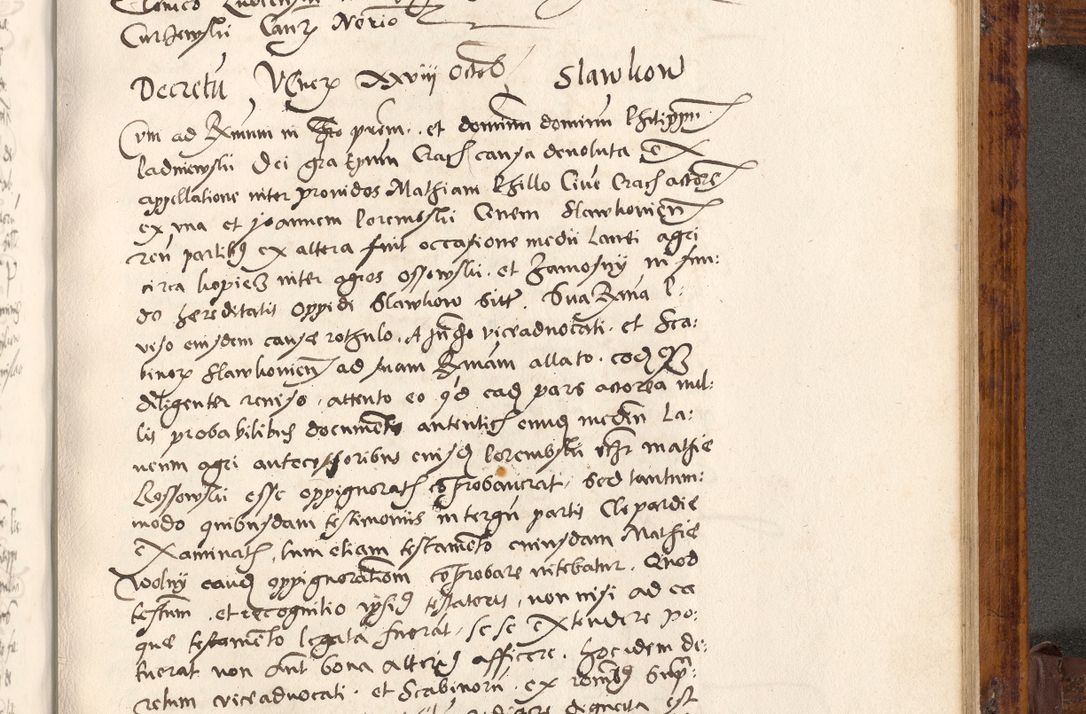 Curzewskÿ Canz Norio
Decretũ Vener XXViii Octob Slawkow
Cvm ad Rmum in Xto prem. et dominũ dominũ Philippũ
Padniewskÿ Dei gra Epum Crac causa devoluta ex
appellatione inter providos Mathiam Philto Cive Crac actorẽ
ex una et Joannem Poremskÿ Civem Slawkovien
reũ partib ex altera fuit occasione medii Lanei agri
circa kopiecz inter agros Ossowskÿ. et Zamosnÿ in fun:
do hereditatis oppidi Slawkow Sitt. Sua Rma P:
viso eiusdem cause rothulo. A Judo viceadvocati. et Sca:
binor Slawkovien ad suam Rmam allato. eoq
diligenter reviso, attento eo qd eadẽ pars actorea nul:
lis probabilibus documento autentic eundẽ mediũ La:
neum agri antecessoribus eiusdẽ Porembskÿ Mathie
Kossowskÿ esse oppignorat cõprobaverat, Sed tantum:
modo quibusdam testimoniis in tergũ partis Cleopardie
examinat, tum etiam testamẽto cuiusdam Mathie
Wolnÿ eandẽ oppignorationem cõprobare nitebatur. Quod
testium. et recognitio ipsiq testatoris, non nisi ad ea
que testamẽto legata fuerat, se se extendere po:
tuerat non aut bona alteriq afficere. Hoc idem de:
cretum viceadvocati. et Scabinorũ. ex
est